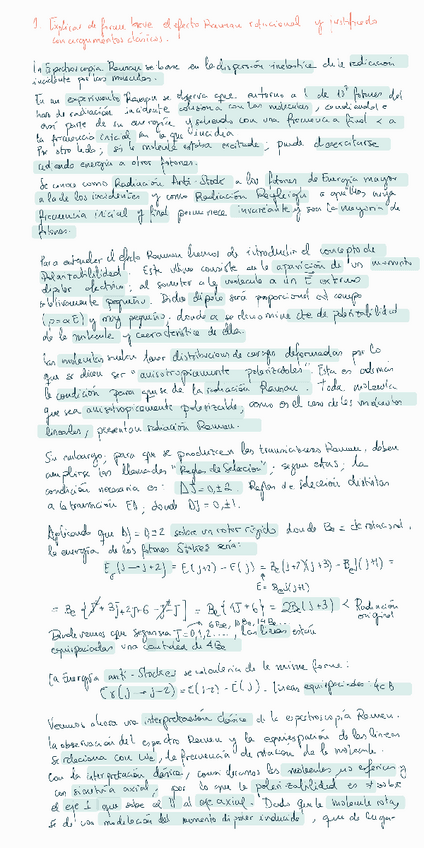 1. Explicar de forma breve el efecto Raman rotacional y justificarlo
con argumentos clásicos.
La Espectroscopía Raman se basa en la dispersión inelástica de la radiación
incidente por las moléculas.
En un experimento Raman se observa que entorno a 1 de fotones del
haz de radiación incidente colisiona con las moléculas,
así parte de su energía y saliendo con una frecuencia final < a
la frecuencia inicial en la que incidía
Por otro lado, si la molécula estaba excitada, puede desexcitarse
cediendo energía a otros fotones.
Se conoce como Radiación Anti-Stock a los fotones de Energía mayor
a la de los incidentes y como Radiación Rayleigh a aquellos cuya
frecuencia inicial y final permanece invariante y son la mayoría de
fotones.
Para entender el efecto Raman hemos de introducir el concepto de
Polarizabilidad. Este último consiste en la aparición de un momento
dipolar eléctrico, al someter a la molécula a un E externo
relativamente pequeño. Dicho dipolo será proporcional al campo
(p=αE) y muy pequeño, donde α se denomina cte de polarizabilidad
de la molécula y característica de ella.
Las moléculas suelen tener distribución de cargas deformadas por lo
que se dicen ser "anisotrópicamente polarizables". Esta es además
la condición para que se dé la radiación Raman. Toda molécula
que sea anisotrópicamente polarizable, como es el caso de las moléculas
lineales, presentan radiación Raman.
Sin embargo, para que se produzcan las transiciones Raman, deben
cumplirse las llamadas "Reglas de Selección", según estas, la
condición necesaria es: ΔJ=0,±2 Reglas de selección distintas
a la transición, donde ΔJ=0,±1.
Aplicando que ΔJ=0,±2 sobre un rotor rígido donde Be = cte rotacional,
la energía de los fotones Stokes sería:
E (J→J+2) = E(J+2) - E(J) = Be(J+2)(J+3) - BeJ(J+1) =
E = BeJ(J+1)
= Be{4J+6} = 2Be(2J+3) < Radiación
original
6Be, 10Be, 14Be...
Donde vemos que según sea J=0,1,2..., las líneas están
equiespaciadas una cantidad de 4Be
La Energía anti-Stockes se calcularía de la misma forma:
(J→J-2) = E(J-2) - E(J). Líneas equiespaciadas: 4cB
Veamos ahora una interpretación clásica de la espectroscopía Raman.
La observación del espectro Raman y la equiespaciación de las líneas
se relaciona con, la frecuencia de rotación de la molécula.
Con la interpretación clásica, consideramos las moléculas no esféricas y
con simetría axial, por lo que la polarizabilidad es ≠ sobre
el eje ⊥ que sobre el || al eje axial. Dado que la molécula rota,
se da una modulación del momento dipolar inducido, que da lugar-